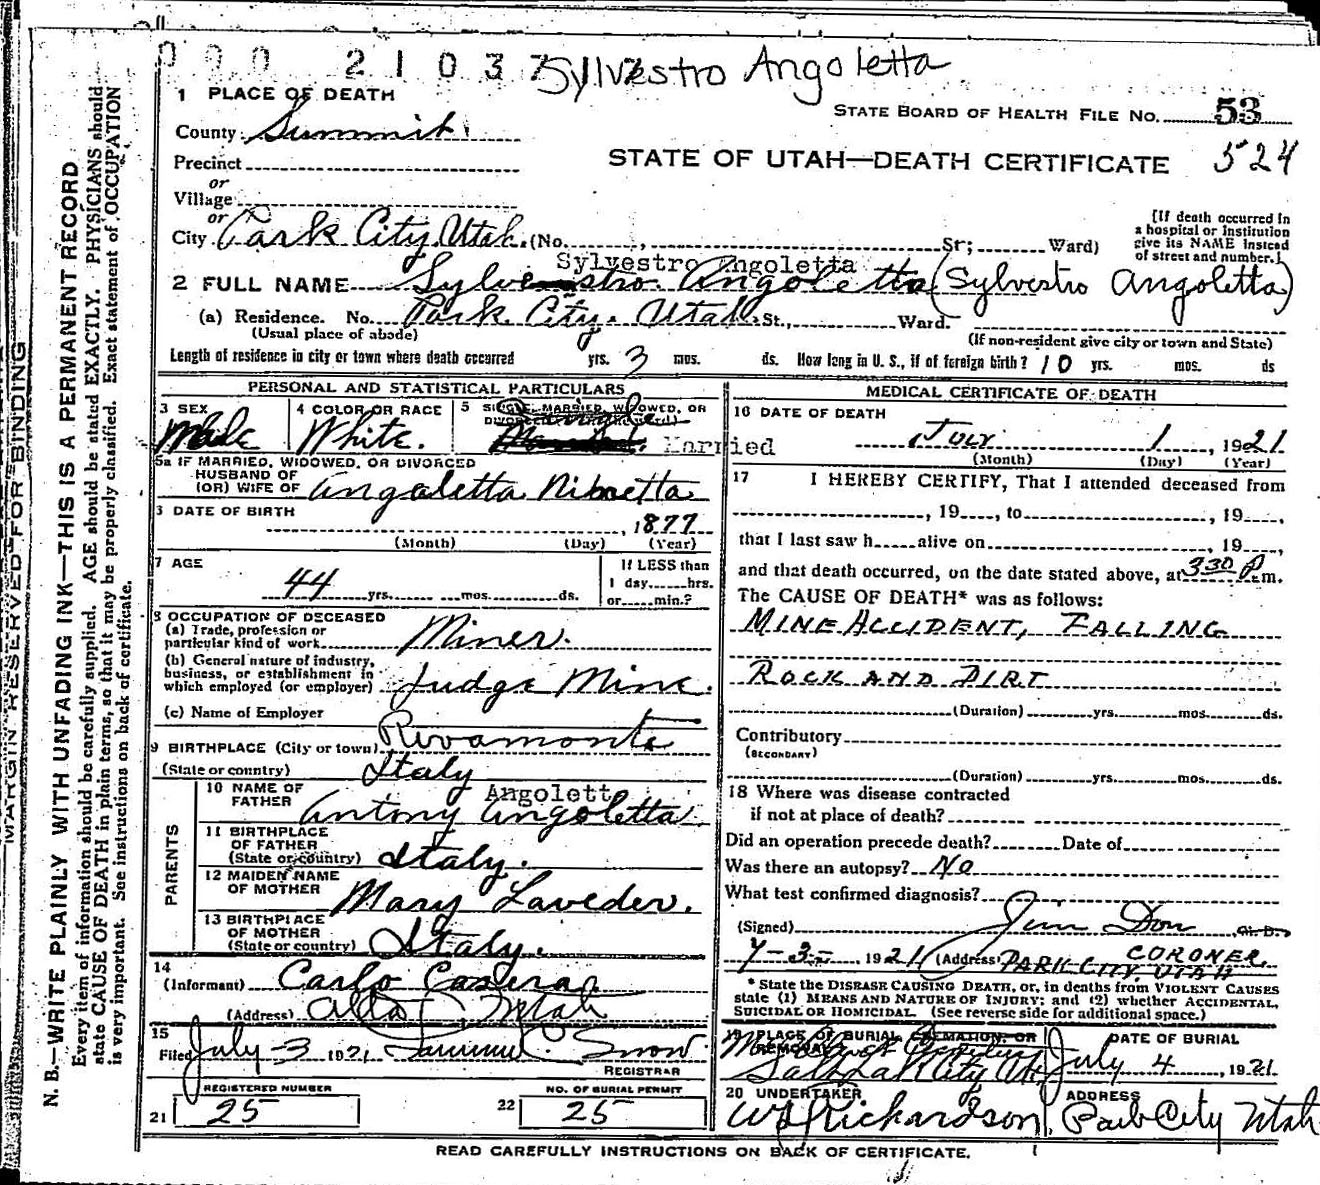 000 21037
Sylvestro Angoletta
1 PLACE OF DEATH
STATE BOARD OF HEALTH FILE No. 53
County Summit
STATE OF UTAH—DEATH CERTIFICATE 524
Precinct
or
Village
or
City Park City, Utah. (No. , St; Ward)
(If death occurred in a hospital or institution give its NAME instead of street and number.)
Sylvestro Angoletta
2 FULL NAME Sylvestro Angoletta (Sylvestro Angoletta)
(a) Residence. No. Park City, Utah. St., Ward.
(Usual place of abode)
(If non-resident give city or town and State)
Length of residence in city or town where death occurred yrs. 3 mos. ds. How long in U. S., if of foreign birth? 10 yrs. mos. ds
PERSONAL AND STATISTICAL PARTICULARS
3 SEX
Male
4 COLOR OR RACE
White.
5 SINGLE, MARRIED, WIDOWED, OR
Single
Married
5a IF MARRIED, WIDOWED, OR DIVORCED
HUSBAND OF
(OR) WIFE OF Angoletta
6 DATE OF BIRTH
, 1877
(Month) (Day) (Year)
7 AGE
44 yrs. mos. ds.
If LESS than
1 day, hrs.
or min.?
8 OCCUPATION OF DECEASED
(a) Trade, profession or
particular kind of work Miner.
(b) General nature of industry,
business, or establishment in
which employed (or employer) Judge Mine.
(c) Name of Employer
9 BIRTHPLACE (City or town) Rivamonte
(State or country) Italy
PARENTS
10 NAME OF
FATHER Antony Angoletta
Angolett
11 BIRTHPLACE
OF FATHER
(State or country) Italy.
12 MAIDEN NAME
OF MOTHER Mary Laveder.
13 BIRTHPLACE
OF MOTHER
(State or country) Italy.
14
(Informant) Carlo
(Address) Alta Utah
15
Filed July 3 1921 Snow
REGISTRAR
REGISTERED NUMBER
21 25
NO. OF BURIAL PERMIT
22 25
MEDICAL CERTIFICATE OF DEATH
16 DATE OF DEATH
July 1, 1921
(Month) (Day) (Year)
17 I HEREBY CERTIFY, That I attended deceased from
, 19 , to , 19 ,
that I last saw h alive on , 19 ,
and that death occurred, on the date stated above, at 330 P.m.
The CAUSE OF DEATH* was as follows:
MINE ACCIDENT, FALLING
ROCK AND DIRT
(Duration) yrs. mos. ds.
Contributory
(SECONDARY)
(Duration) yrs. mos. ds.
18 Where was disease contracted
if not at place of death?
Did an operation precede death? Date of
Was there an autopsy? No
What test confirmed diagnosis?
(Signed) Jim Don M.D.
CORONER.
7-3- 1921 (Address) PARK CITY UTAH
* State the DISEASE CAUSING DEATH, or, in deaths from VIOLENT CAUSES
state (1) MEANS AND NATURE OF INJURY; and (2) whether ACCIDENTAL,
SUICIDAL OR HOMICIDAL. (See reverse side for additional space.)
19 PLACE OF BURIAL, CREMATION, OR
REMOVAL
Salt Lake City Ut.
DATE OF BURIAL
July 4, 1921
20 UNDERTAKER
W Richardson
ADDRESS
Park City Utah
READ CAREFULLY INSTRUCTIONS ON BACK OF CERTIFICATE.
MARGIN RESERVED FOR BINDING
N. B.—WRITE PLAINLY WITH UNFADING INK—THIS IS A PERMANENT RECORD
Every item of information should be carefully supplied. AGE should be stated EXACTLY. PHYSICIANS should
state CAUSE OF DEATH in plain terms, so that it may be properly classified. Exact statement of OCCUPATION
is very important. See instructions on back of certificate.